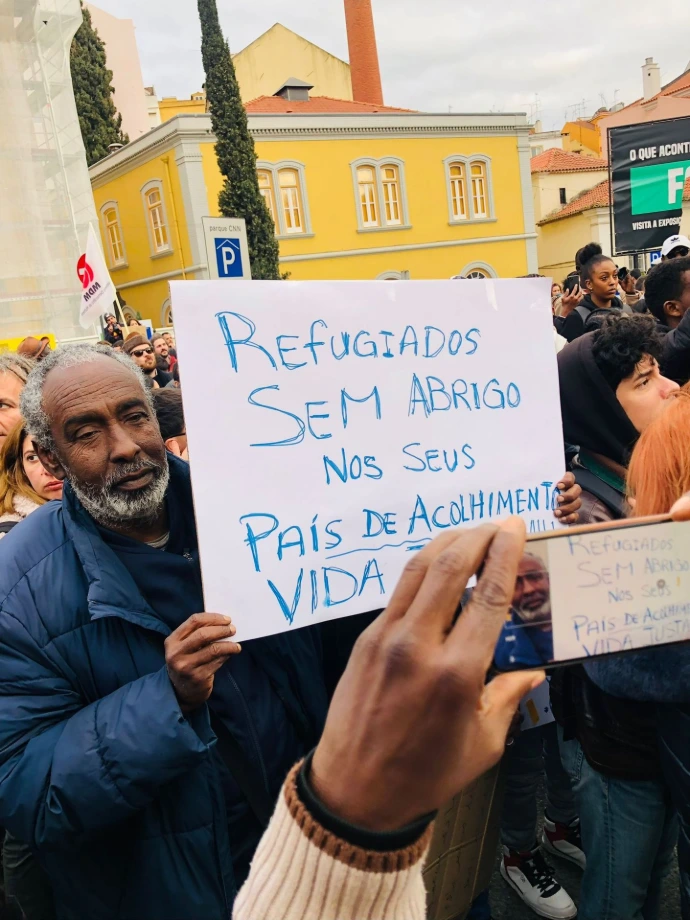 parque CNN
P
O QUE ACONT
F
VISITA A EXPOSI
WDW
REFUGIADOS
SEM ABRIGO
NOS SEUS
PAÍS DE ACOLHIMENTO
VIDA
REFUGIADOS
SEM ABRIGO
NOS SEUS
PAÍS DE ACOLHIMEN
VIDA JUSTA